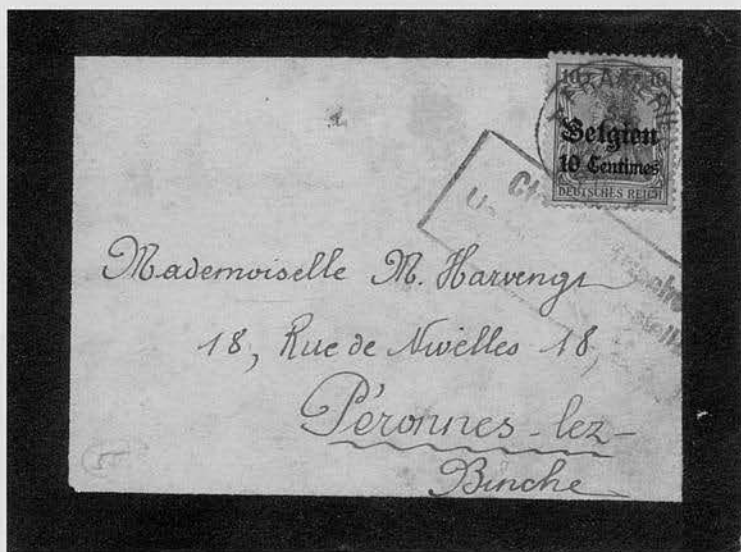 10 10
Belgien
10 Centimes
DEUTSCHES REICH
Mademoiselle M. Harvengt
18, Rue de Nivelles 18,
Péronnes-lez-
Binche